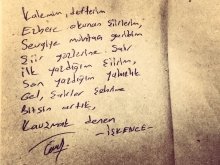 Kalemim, defterim
Ezbere okunan şiirlerim,
Sevgiye muhtaç
Şiir yazılarına. Sabr
İlk yazdığım şiirim,
Son yazdığım yalnızlık
Gel, şairler şehrine
Bitsin artık,
Kavuşmak denen
-İŞKENCE-